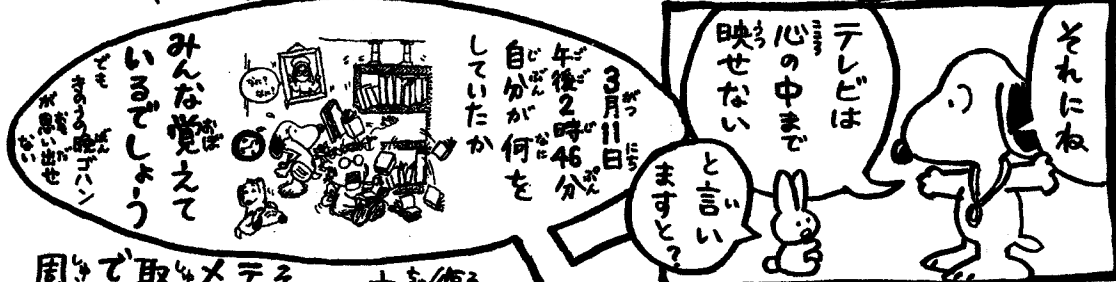 それにね
テレビは
心の中まで
映せない
と言い
ますと?
3月11日
午後2時46分
自分が何を
していたか
みんな覚えて
いるでしょう
でも
きのうの晩ゴハン
が思い出せ
ない